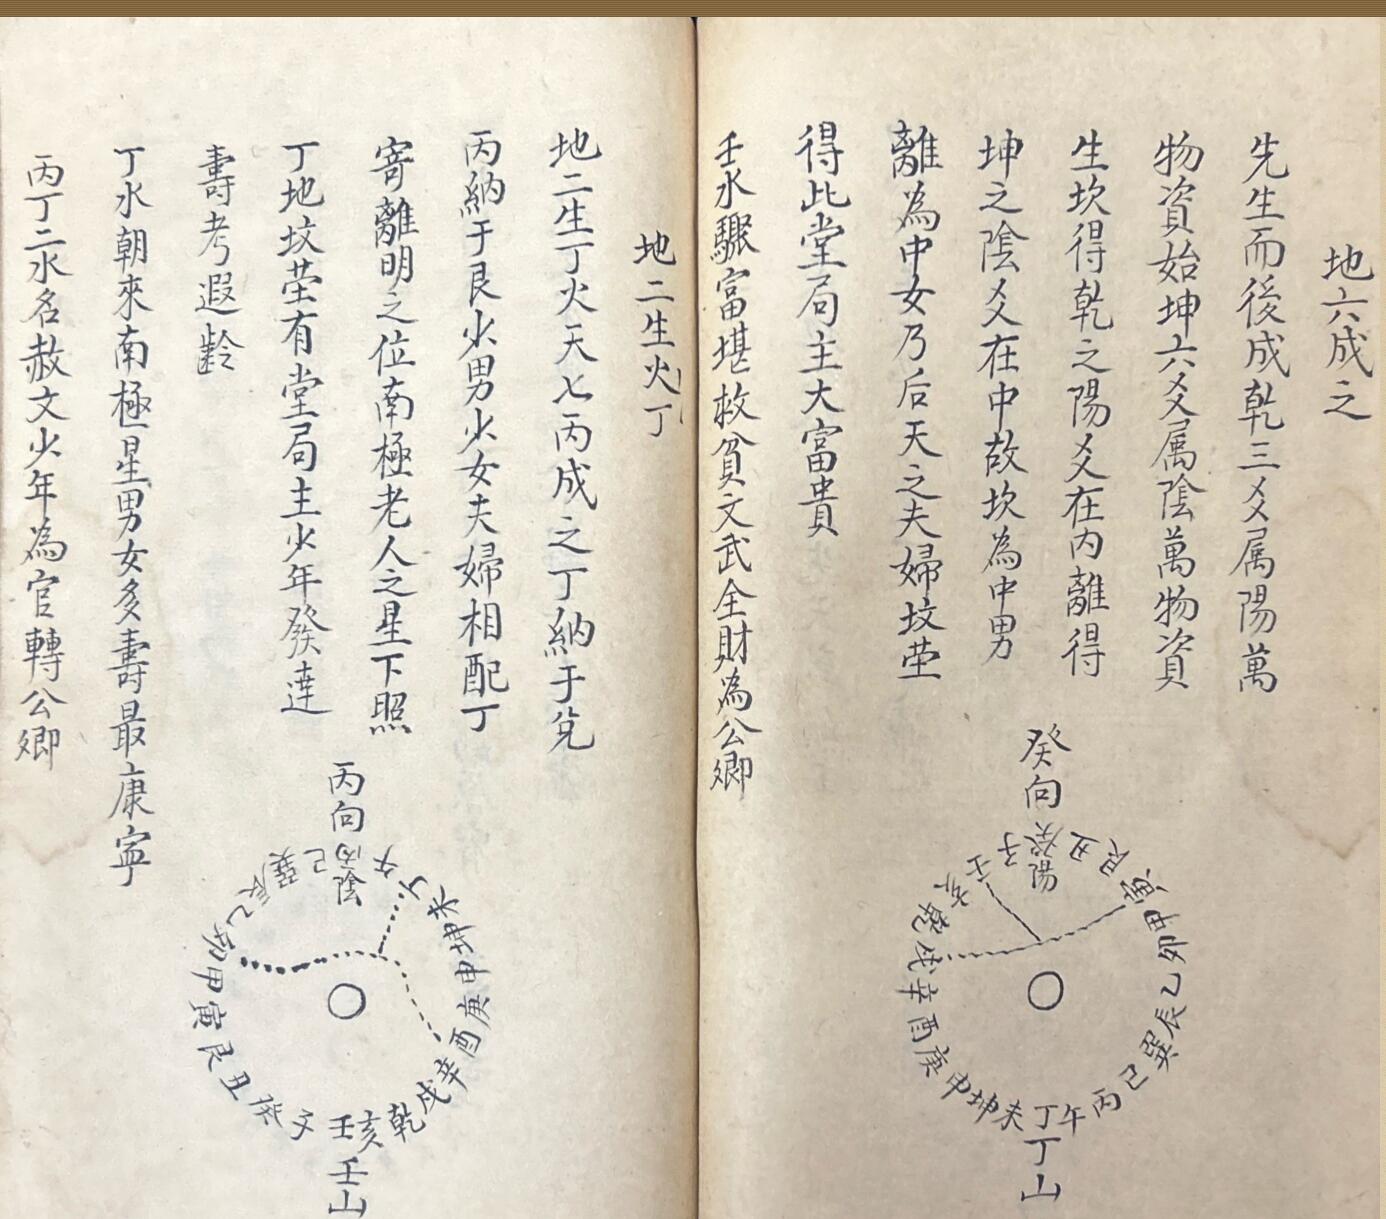 地六成之
先生而後成乾三爻属陽萬
物資始坤六爻属陰萬物資
生坎得乾之陽爻在内離得
坤之陰爻在中故坎為中男
離為中女乃后天之夫婦坟茔
得此堂局主大富貴
壬水驟富堪救貧文武全財為公卿
癸向
陽
壬子癸丑艮寅甲卯乙辰巽巳丙午丁未坤申庚酉辛戌乾亥
丁山
地二生火丁
地二生丁火天七丙成之丁納于兌
丙納于艮少男少女夫婦相配丁
寄離明之位南極老人之星下照
丁地坟茔有堂局主少年發達
壽考遐齡
丁水朝來南極星男女多壽最康寧
丙丁二水名赦文少年為官轉公卿
丙向
陰
丙午丁未坤申庚酉辛戌乾亥壬子癸丑艮寅甲卯乙辰巽巳
壬山